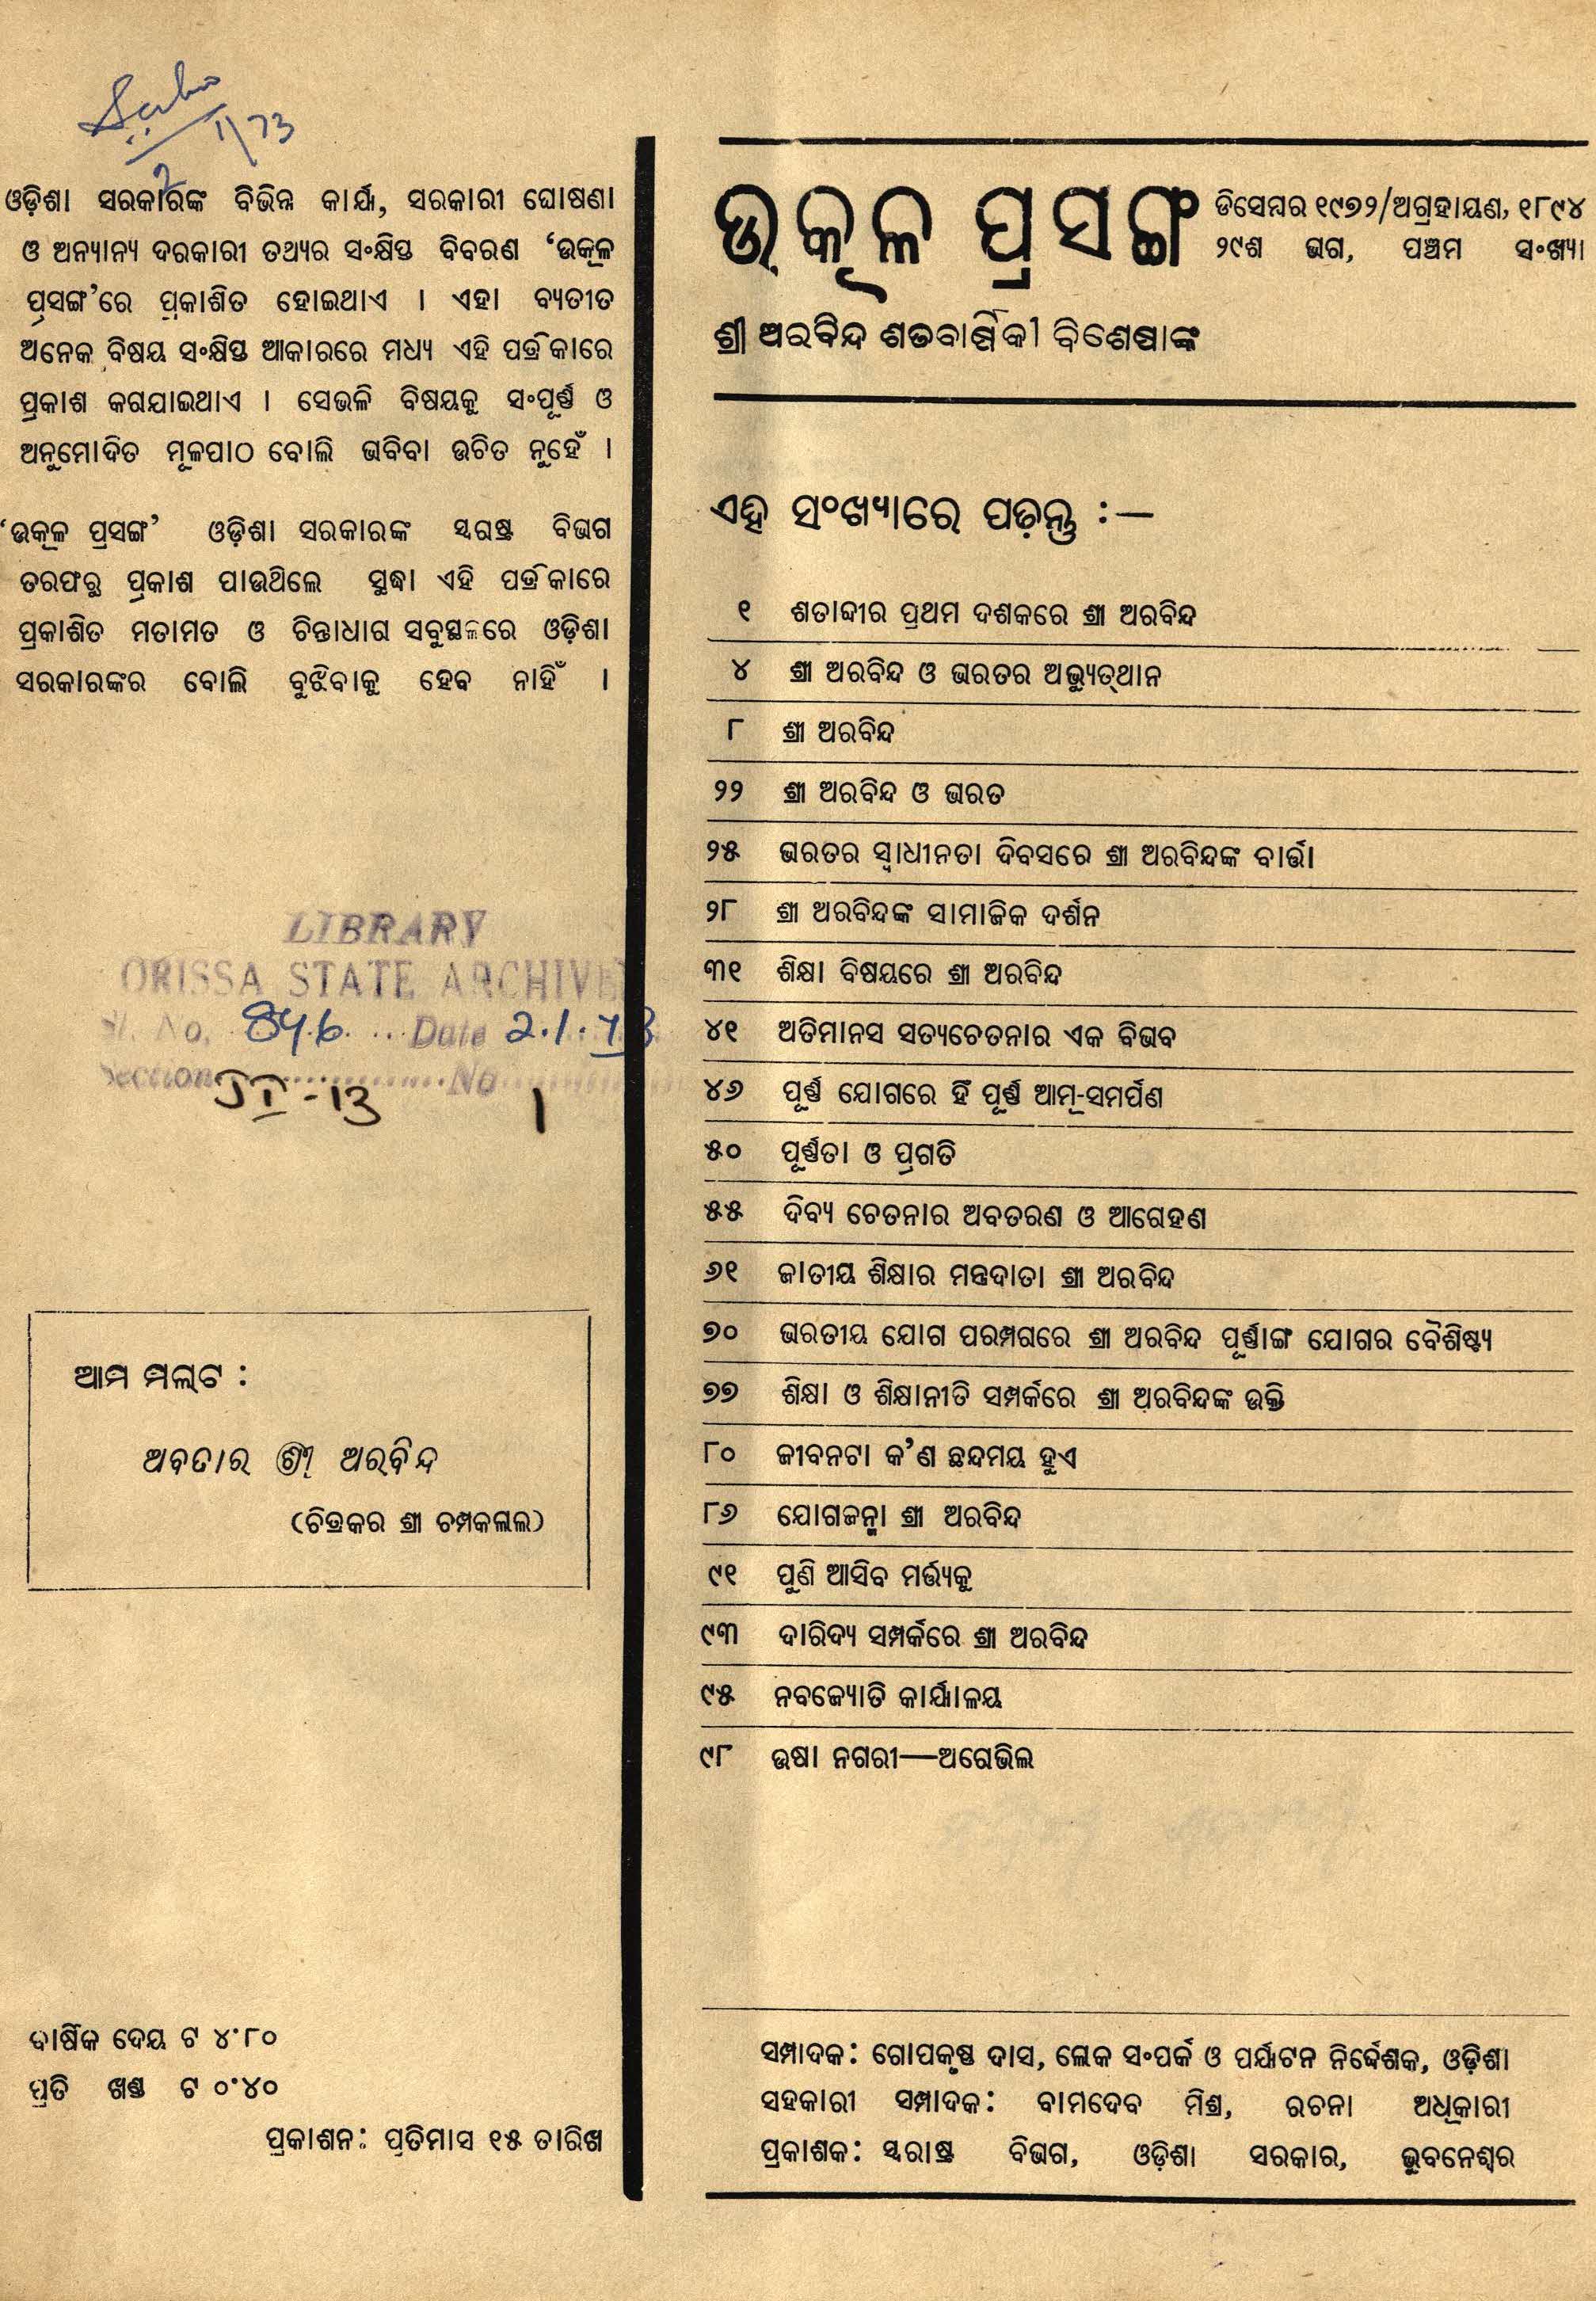 1/73
2
ଓଡ଼ିଶା ସରକାରଙ୍କ ବିଭିନ୍ନ କାର୍ଯ୍ୟ, ସରକାରୀ ଘୋଷଣା
ଓ ଅନ୍ୟାନ୍ୟ ଦରକାରୀ ତଥ୍ୟର ସଂକ୍ଷିପ୍ତ ବିବରଣ ‘ଉତ୍କଳ
ପ୍ରସଙ୍ଗ’ରେ ପ୍ରକାଶିତ ହୋଇଥାଏ । ଏହା ବ୍ୟତୀତ
ଅନେକ ବିଷୟ ସଂକ୍ଷିପ୍ତ ଆକାରରେ ମଧ୍ୟ ଏହି ପତ୍ରିକାରେ
ପ୍ରକାଶ କରାଯାଇଥାଏ । ସେଭଳି ବିଷୟକୁ ସଂପୂର୍ଣ୍ଣ ଓ
ଅନୁମୋଦିତ ମୂଳପାଠ ବୋଲି ଭାବିବା ଉଚିତ ନୁହେଁ ।
‘ଉତ୍କଳ ପ୍ରସଙ୍ଗ’ ଓଡ଼ିଶା ସରକାରଙ୍କ ସ୍ୱରାଷ୍ଟ୍ର ବିଭାଗ
ତରଫରୁ ପ୍ରକାଶ ପାଉଥିଲେ ସୁଦ୍ଧା ଏହି ପତ୍ରିକାରେ
ପ୍ରକାଶିତ ମତାମତ ଓ ଚିନ୍ତାଧାରା ସବୁସ୍ଥଳରେ ଓଡ଼ିଶା
ସରକାରଙ୍କର ବୋଲି ବୁଝିବାକୁ ହେବ ନାହିଁ ।
LIBRARY
ORISSA STATE ARCHIVES
Sl. No. 846 Date 2.1.73
Section JT-13 No 1
ଆମ ମଲାଟ :
ଅବତାର ଶ୍ରୀ ଅରବିନ୍ଦ
(ଚିତ୍ରକର ଶ୍ରୀ ଚମ୍ପକଲାଲ)
ବାର୍ଷିକ ଦେୟ ଟ ୪·୮୦
ପ୍ରତି ଖଣ୍ଡ ଟ ୦·୪୦
ପ୍ରକାଶନ: ପ୍ରତିମାସ ୧୫ ତାରିଖ
ଉତ୍କଳ ପ୍ରସଙ୍ଗ
ଡିସେମ୍ବର ୧୯୭୨/ଅଗ୍ରହାୟଣ, ୧୮୯୪
୨୯ଶ ଭାଗ, ପଞ୍ଚମ ସଂଖ୍ୟା
ଶ୍ରୀ ଅରବିନ୍ଦ ଶତବାର୍ଷିକୀ ବିଶେଷାଙ୍କ
ଏହି ସଂଖ୍ୟାରେ ପଢ଼ନ୍ତୁ :—
୧ ଶତାବ୍ଦୀର ପ୍ରଥମ ଦଶକରେ ଶ୍ରୀ ଅରବିନ୍ଦ
୪ ଶ୍ରୀ ଅରବିନ୍ଦ ଓ ଭାରତର ଅଭ୍ୟୁତ୍‌ଥାନ
୮ ଶ୍ରୀ ଅରବିନ୍ଦ
୨୨ ଶ୍ରୀ ଅରବିନ୍ଦ ଓ ଭାରତ
୨୫ ଭାରତର ସ୍ୱାଧୀନତା ଦିବସରେ ଶ୍ରୀ ଅରବିନ୍ଦଙ୍କ ବାର୍ତ୍ତା
୨୮ ଶ୍ରୀ ଅରବିନ୍ଦଙ୍କ ସାମାଜିକ ଦର୍ଶନ
୩୧ ଶିକ୍ଷା ବିଷୟରେ ଶ୍ରୀ ଅରବିନ୍ଦ
୪୧ ଅତିମାନସ ସତ୍ୟଚେତନାର ଏକ ବିଭବ
୪୬ ପୂର୍ଣ୍ଣ ଯୋଗରେ ହିଁ ପୂର୍ଣ୍ଣ ଆତ୍ମ-ସମର୍ପଣ
୫୦ ପୂର୍ଣ୍ଣତା ଓ ପ୍ରଗତି
୫୫ ଦିବ୍ୟ ଚେତନାର ଅବତରଣ ଓ ଆରୋହଣ
୬୧ ଜାତୀୟ ଶିକ୍ଷାର ମନ୍ତ୍ରଦାତା ଶ୍ରୀ ଅରବିନ୍ଦ
୭୦ ଭାରତୀୟ ଯୋଗ ପରମ୍ପରାରେ ଶ୍ରୀ ଅରବିନ୍ଦ ପୂର୍ଣ୍ଣାଙ୍ଗ ଯୋଗର ବୈଶିଷ୍ଟ୍ୟ
୭୭ ଶିକ୍ଷା ଓ ଶିକ୍ଷାନୀତି ସମ୍ପର୍କରେ ଶ୍ରୀ ଅରବିନ୍ଦଙ୍କ ଉକ୍ତି
୮୦ ଜୀବନଟା କ’ଣ ଛନ୍ଦମୟ ହୁଏ
୮୬ ଯୋଗଜନ୍ମା ଶ୍ରୀ ଅରବିନ୍ଦ
୯୧ ପୁଣି ଆସିବ ମର୍ତ୍ତ୍ୟକୁ
୯୩ ଦାରିଦ୍ର୍ୟ ସମ୍ପର୍କରେ ଶ୍ରୀ ଅରବିନ୍ଦ
୯୫ ନବଜ୍ୟୋତି କାର୍ଯ୍ୟାଳୟ
୯୮ ଉଷା ନଗରୀ—ଅରୋଭିଲ
ସମ୍ପାଦକ: ଗୋପକୃଷ୍ଣ ଦାସ, ଲୋକ ସଂପର୍କ ଓ ପର୍ଯ୍ୟଟନ ନିର୍ଦ୍ଦେଶକ, ଓଡ଼ିଶା
ସହକାରୀ ସମ୍ପାଦକ: ବାମଦେବ ମିଶ୍ର, ରଚନା ଅଧିକାରୀ
ପ୍ରକାଶକ: ସ୍ୱରାଷ୍ଟ୍ର ବିଭାଗ, ଓଡ଼ିଶା ସରକାର, ଭୁବନେଶ୍ୱର